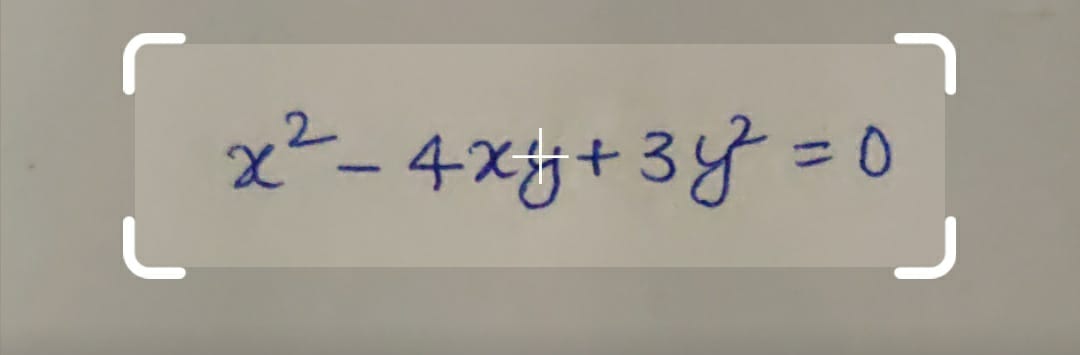 x² - 4xy + 3y² = 0